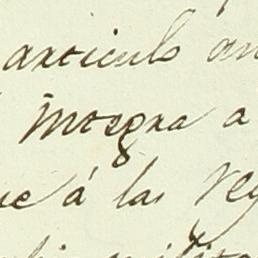 articulo an
integra a
ue á las reg